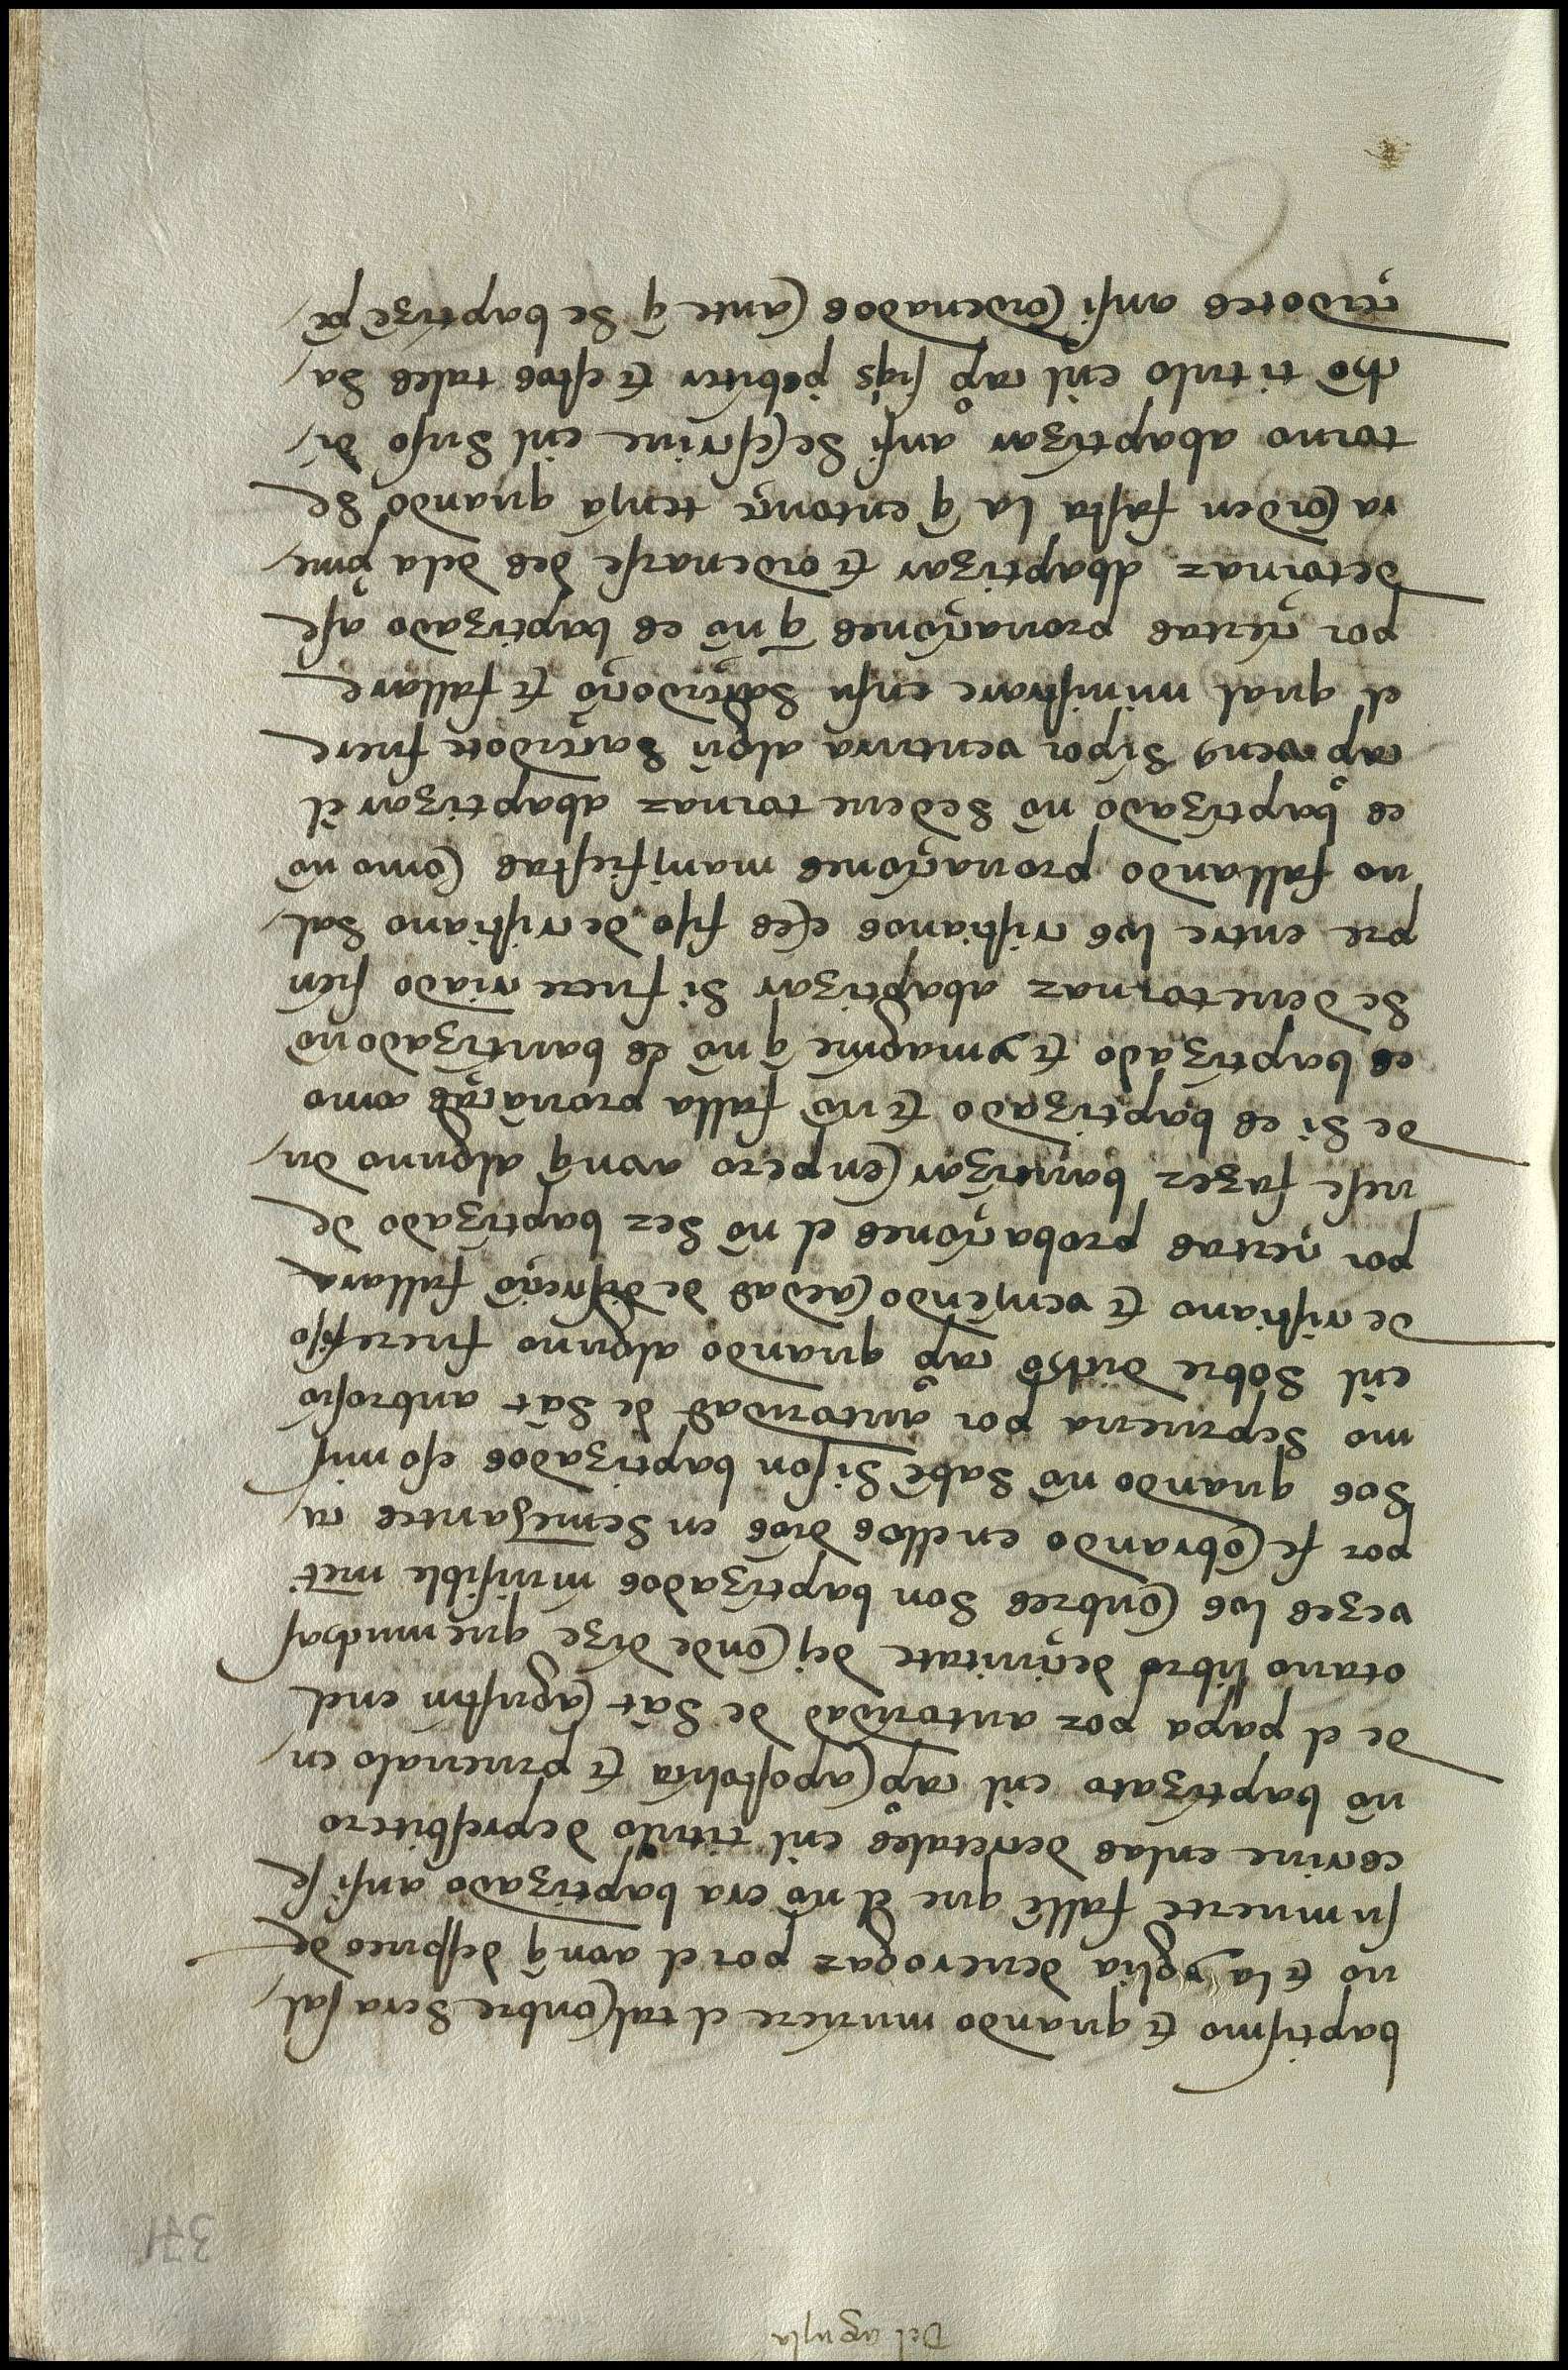 Del aguila
371
baptismo & quando muriere el tal onbre sera sal
uo & la yglia deue rogar por el avnq̄ despues de
su muerte fallē que el nō era baptizado ansi se
escriue en las decretales enl titulo de presbitero
nō baptizato enl capº apostolica & prueualo en
de el papa por autoridad de sāt agustin en el
otauo libro de çiuitate dei onde dize que muchas
vezes los onbres son baptizados inuisible mēt
por fe obrando en ellos dios en semejantes ca
sos quando nō sabē si son baptizados eso mis
mo se prueua por autoridad de sāt anbrosio
enl sobre dicho capº quando alguno fuere fijo
de cristiano & veniendo a edad de discreçiō fallara
por çiertas probaçiones el nō ser baptizado de
uese fazer bautizar enpero avnq̄ alguno du
de si es baptizado & nō falla prouāças como
es baptizado & ymagine q̄ nō es bautizado nō
se deue tornar a baptizar si fuere criado sien
pre entre los cristianos e es fijo de cristiano sal
uo fallando prouaçiones manifiestas como nō
es baptizado nō se deue tornar a baptizar el
capº veniēs si por ventura algū saçerdote fuere
el qual ministrare en su saçerdoçio & fallare
por çiertas prouaçiones q̄ nō es baptizado āse
de tornar a baptizar & ordenarse des de la prime
ra orden fasta la q̄ entonçe tenja quando se
torno a baptizar ansi se escriue enl suso di
cho titulo enl capº siqs̄ p̄sbiter & estos tales sa
çerdotes ansi ordenados ante q̄ se baptizē pe